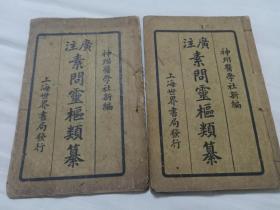 神州醫學社新編
廣注
素問靈樞類纂
上海世界書局發行
神州醫學社新編
廣注
素問靈樞類纂
上海世界書局發行